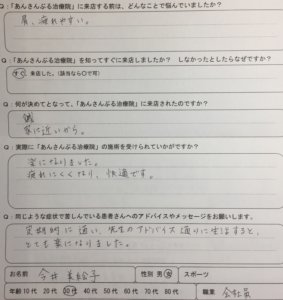 Q:「あんさんぶる治療院」に来店する前は、どんなことで悩んでいましたか?
肩、疲れやすい。
Q:「あんさんぶる治療院」を知ってすぐに来店しましたか? しなかったとしたらなぜですか?
すぐ 来店した。(該当なら〇で可)
Q:何が決めてとなって、「あんさんぶる治療院」に来店されたのですか?
鍼
家に近いから。
Q:実際に「あんさんぶる治療院」の施術を受けられていかがですか?
楽になりました。
疲れにくくなり、快適です。
Q:同じような症状で苦しんでいる患者さんへのアドバイスやメッセージをお願いします。
定期的に通い、先生のアドバイス通りに生活すると、
とても楽になりました。
お名前 今井 美絵子 性別 男 女 スポーツ
年齢 10代 20代 30代 40代 50代 60代 70代 80代 職業 会社員